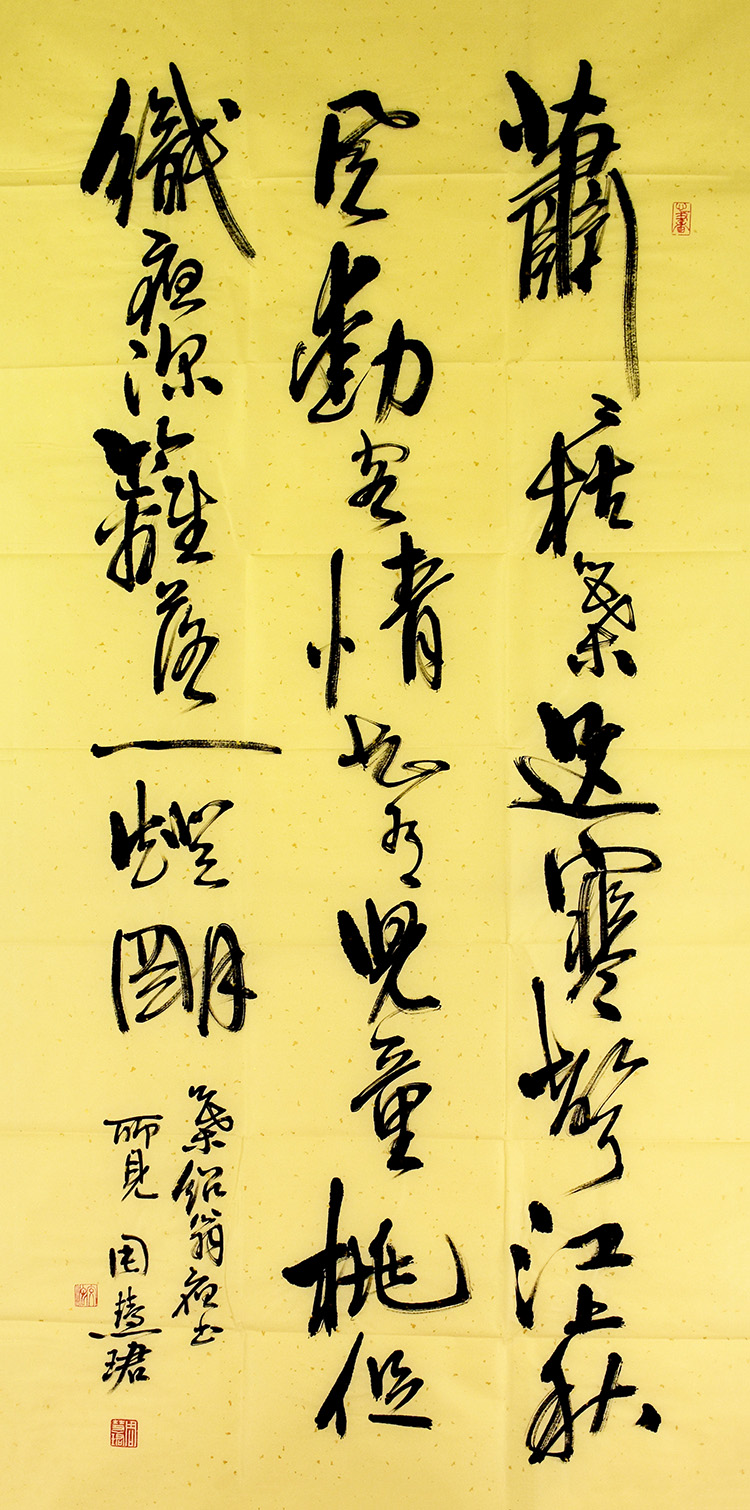 蕭〻梧葉送寒聲江上秋
風動客情知有兒童挑促
織夜深籬落一燈明
葉紹翁夜书
所見 周慧珺